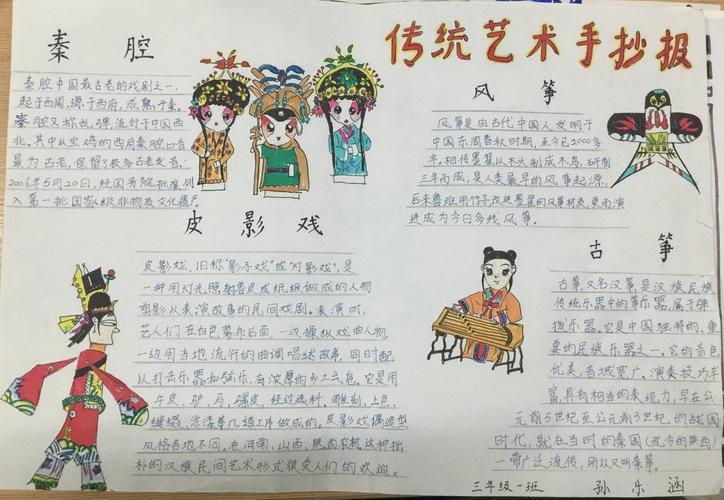 传统艺术手抄报
秦腔
秦腔中国最古老的戏剧之一,
起于西周,源于西府,成熟于秦。
秦腔又称乱弹,流行于中国西
北,其中以宝鸡的西府秦腔口音
最为古老,保留了较多古老发音。
2006年5月20日,经国务院批准列
入第一批国家级非物质文化遗产
风筝
风筝是由古代中国人发明于
中国东周春秋时期,至今已2000多
年。相传墨翟以木头制成木鸟,研制
三年而成,是人类最早的风筝起源,
后来鲁班用竹子改进墨翟的风筝材质,更而演
进成为今日多线风筝。
皮影戏
皮影戏,旧称“影子戏”或“灯影戏”,是
一种用灯光照射兽皮或纸板做成的人物
剪影以表演故事的民间戏剧。表演时,
艺人们在白色幕布后面,一边操纵戏曲人物,
一边用当地流行的曲调唱述故事,同时配
以打击乐器和弦乐,有浓厚的乡土气息。它是用
牛皮,驴,马,骡皮,经过选料,雕刻,上色,
缝缀,涂漆等几道工序做成的。皮影戏偶造型
风格各地不同,在河南,山西,陕西农村,这种拙
朴的汉族民间艺术形式很受人们的欢迎。
古筝
古筝又名汉筝,是汉族民族
传统乐器中的筝乐器,属于弹
拨乐器。它是中国独特的、重
要的民族乐器之一。它的音色
优美,音域宽广、演奏技巧丰
富,具有相当的表现力,早在公
元前5世纪至公元前3世纪的战国
时代,就在当时的秦国(现今的陕西)
一带广泛流传,所以又叫秦筝。
三年级一班 孙乐涵